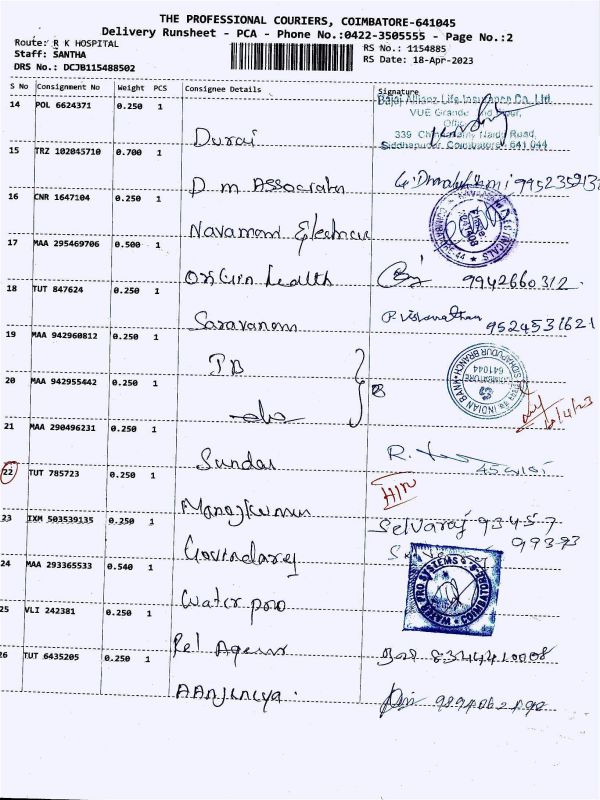 THE PROFESSIONAL COURIERS, COIMBATORE-641045
Delivery Runsheet - PCA - Phone No.:0422-3505555 - Page No.:2
Route: R K HOSPITAL
Staff: SANTHA
DRS No.: DCJB115488502
RS No.: 1154885
RS Date: 18-Apr-2023
S No Consignment No Weight PCS Consignee Details Signature
14 POL 6624371 0.250 1
Bajaj Allianz Life Insurance Co. Ltd.
VUE Grande
339
Road,
Siddhapudur, Coimbatore - 641 044
Durai
15 TRZ 102045710 0.700 1
D m Associates
16 CNR 1647104 0.250 1
Navamani
17 MAA 295469706 0.500 1
Origin health
9942660312
18 TUT 847624 0.250 1
Saravanan
P. Viswanathan
9524531621
19 MAA 942960812 0.250 1
IB
INDIAN BANK
SIDHAPUDUR BRANCH
COIMBATORE
641044
20 MAA 942955442 0.250 1
21 MAA 290496231 0.250 1
Sundar
R.
22 TUT 785723 0.250 1
Manojkumar
23 IXM 503539135 0.250 1
Selvaraj 93457
99393
Govindaraj
24 MAA 293365533 0.540 1
Water pro
WATER PRO SYSTEMS
COIMBATORE
25 VLI 242381 0.250 1
Rel
26 TUT 6435205 0.250 1
AAnjineya.